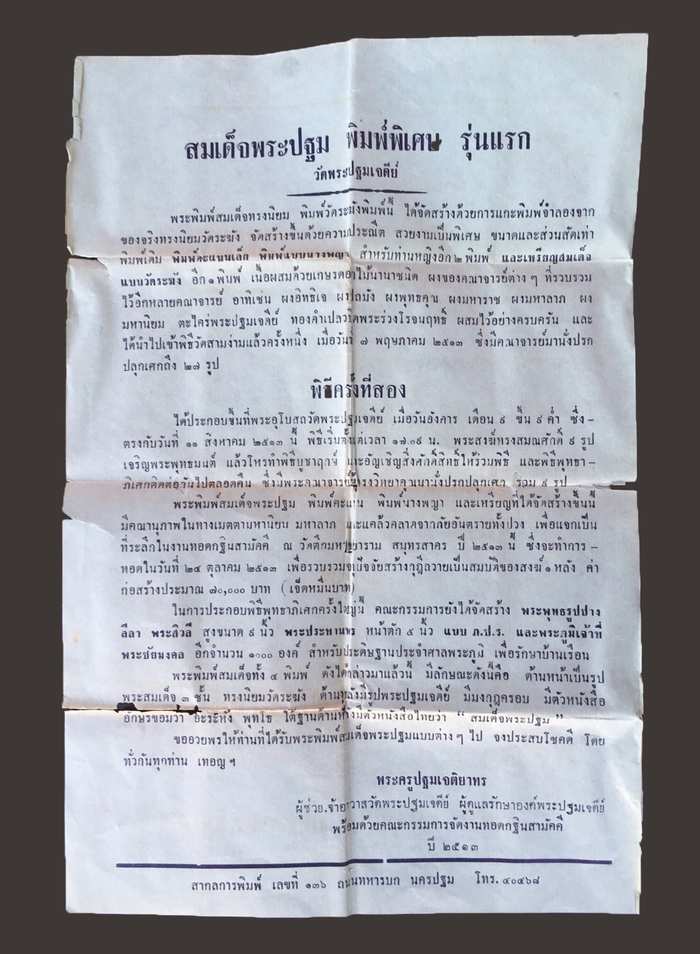 สมเด็จพระปฐม พิมพ์พิเศษ รุ่นแรก
วัดพระปฐมเจดีย์
พระพิมพ์สมเด็จทรงนิยม พิมพ์วัดระฆังพิมพ์นี้ ได้จัดสร้างด้วยการแกะพิมพ์จำลองจาก
ของจริงทรงนิยมวัดระฆัง จัดสร้างขึ้นด้วยความประณีต สวยงามเป็นพิเศษ ขนาดและส่วนสัดเท่า
พิมพ์เดิม พิมพ์คะแนนเล็ก พิมพ์แบบนางพญา สำหรับท่านหญิงอีก ๒ พิมพ์ และเหรียญสมเด็จ
แบบวัดระฆัง อีก ๑ พิมพ์ เนื้อผสมด้วยเกษรดอกไม้นานาชนิด ผงของคณาจารย์ต่าง ๆ ที่รวบรวม
ไว้อีกหลายคณาจารย์ อาทิเช่น ผงอิทธิเจ ผงปถมัง ผงพุทธคุณ ผงมหาราช ผงมหาลาภ ผง
มหานิยม ตะไคร่พระปฐมเจดีย์ ทองคำเปลวพระร่วงโรจนฤทธิ์ ผสมไว้อย่างครบครัน และ
ได้นำไปเข้าพิธีวัดสามง่ามแล้วครั้งหนึ่ง เมื่อวันที่ ๗ พฤษภาคม ๒๕๑๓ ซึ่งมีคณาจารย์มานั่งปรก
ปลุกเศกถึง ๒๗ รูป
พิธีครั้งที่สอง
ได้ประกอบขึ้นที่พระอุโบสถวัดพระปฐมเจดีย์ เมื่อวันอังคาร เดือน ๙ ขึ้น ๙ ค่ำ ซึ่ง -
ตรงกับวันที่ ๑๑ สิงหาคม ๒๕๑๓ นี้ พิธีเริ่มตั้งแต่เวลา ๑๗.๐๙ น. พระสงฆ์ทรงสมณศักดิ์ ๙ รูป
เจริญพระพุทธมนต์ แล้วโหรทำพิธีบูชาฤกษ์ และอัญเชิญสิ่งศักดิ์สิทธิ์ให้ร่วมพิธี และพิธีพุทธา -
ภิเศกติดต่อกันไปตลอดคืน ซึ่งมีพระคณาจารย์ทรงวิทยาคุณมานั่งปรกปลุกเศก รวม ๙ รูป
พระพิมพ์สมเด็จพระปฐม พิมพ์คะแนน พิมพ์นางพญา และเหรียญที่ได้จัดสร้างขึ้นนี้
มีคุณานุภาพในทางเมตตามหานิยม มหาลาภ และแคล้วคลาดจากภัยอันตรายทั้งปวง เพื่อแจกเป็น
ที่ระลึกในงานทอดกฐินสามัคคี ณ วัดตึกมหาชยาราม สมุทรสาคร ปี ๒๕๑๓ นี้ ซึ่งจะทำการ -
ทอดในวันที่ ๒๔ ตุลาคม ๒๕๑๓ เพื่อรวบรวมปัจจัยสร้างกุฎีถวายเป็นสมบัติของสงฆ์ ๑ หลัง ค่า
ก่อสร้างประมาณ ๗๐,๐๐๐ บาท (เจ็ดหมื่นบาท)
ในการประกอบพิธีพุทธาภิเศกครั้งใหญ่นี้ คณะกรรมการยังได้จัดสร้าง พระพุทธรูปปาง
ลีลา พระสิวลี สูงขนาด ๙ นิ้ว พระประทานพร หน้าตัก ๕ นิ้ว แบบ ภ.ป.ร. และพระภูมิเจ้าที่
พระชัยมงคล อีกจำนวน ๑๐๐๐ องค์ สำหรับประดิษฐานประจำศาลพระภูมิ เพื่อรักษาบ้านเรือน
พระพิมพ์สมเด็จทั้ง ๔ พิมพ์ ดังได้กล่าวมาแล้วนี้ มีลักษณะดังนี้คือ ด้านหน้าเป็นรูป
พระสมเด็จ ๓ ชั้น ทรงนิยมวัดระฆัง ด้านหลังมีรูปพระปฐมเจดีย์ มีมงกุฎครอบ มีตัวหนังสือ
อักษรขอมว่า อะระหัง พุทโธ ใต้ฐานด้านล่างมีตัวหนังสือไทยว่า “ สมเด็จพระปฐม ”
ขออวยพรให้ท่านที่ได้รับพระพิมพ์สมเด็จพระปฐมแบบต่าง ๆ ไป จงประสบโชคดี โดย
ทั่วกันทุกท่าน เทอญ ฯ
พระครูปฐมเจติยาทร
ผู้ช่วย.จ้าอาวาสวัดพระปฐมเจดีย์ ผู้ดูแลรักษาองค์พระปฐมเจดีย์
พร้อมด้วยคณะกรรมการจัดงานทอดกฐินสามัคคี
ปี ๒๕๑๓
สากลการพิมพ์ เลขที่ ๑๓๖ ถนนทหารบก นครปฐม โทร. ๔๐๔๖๘